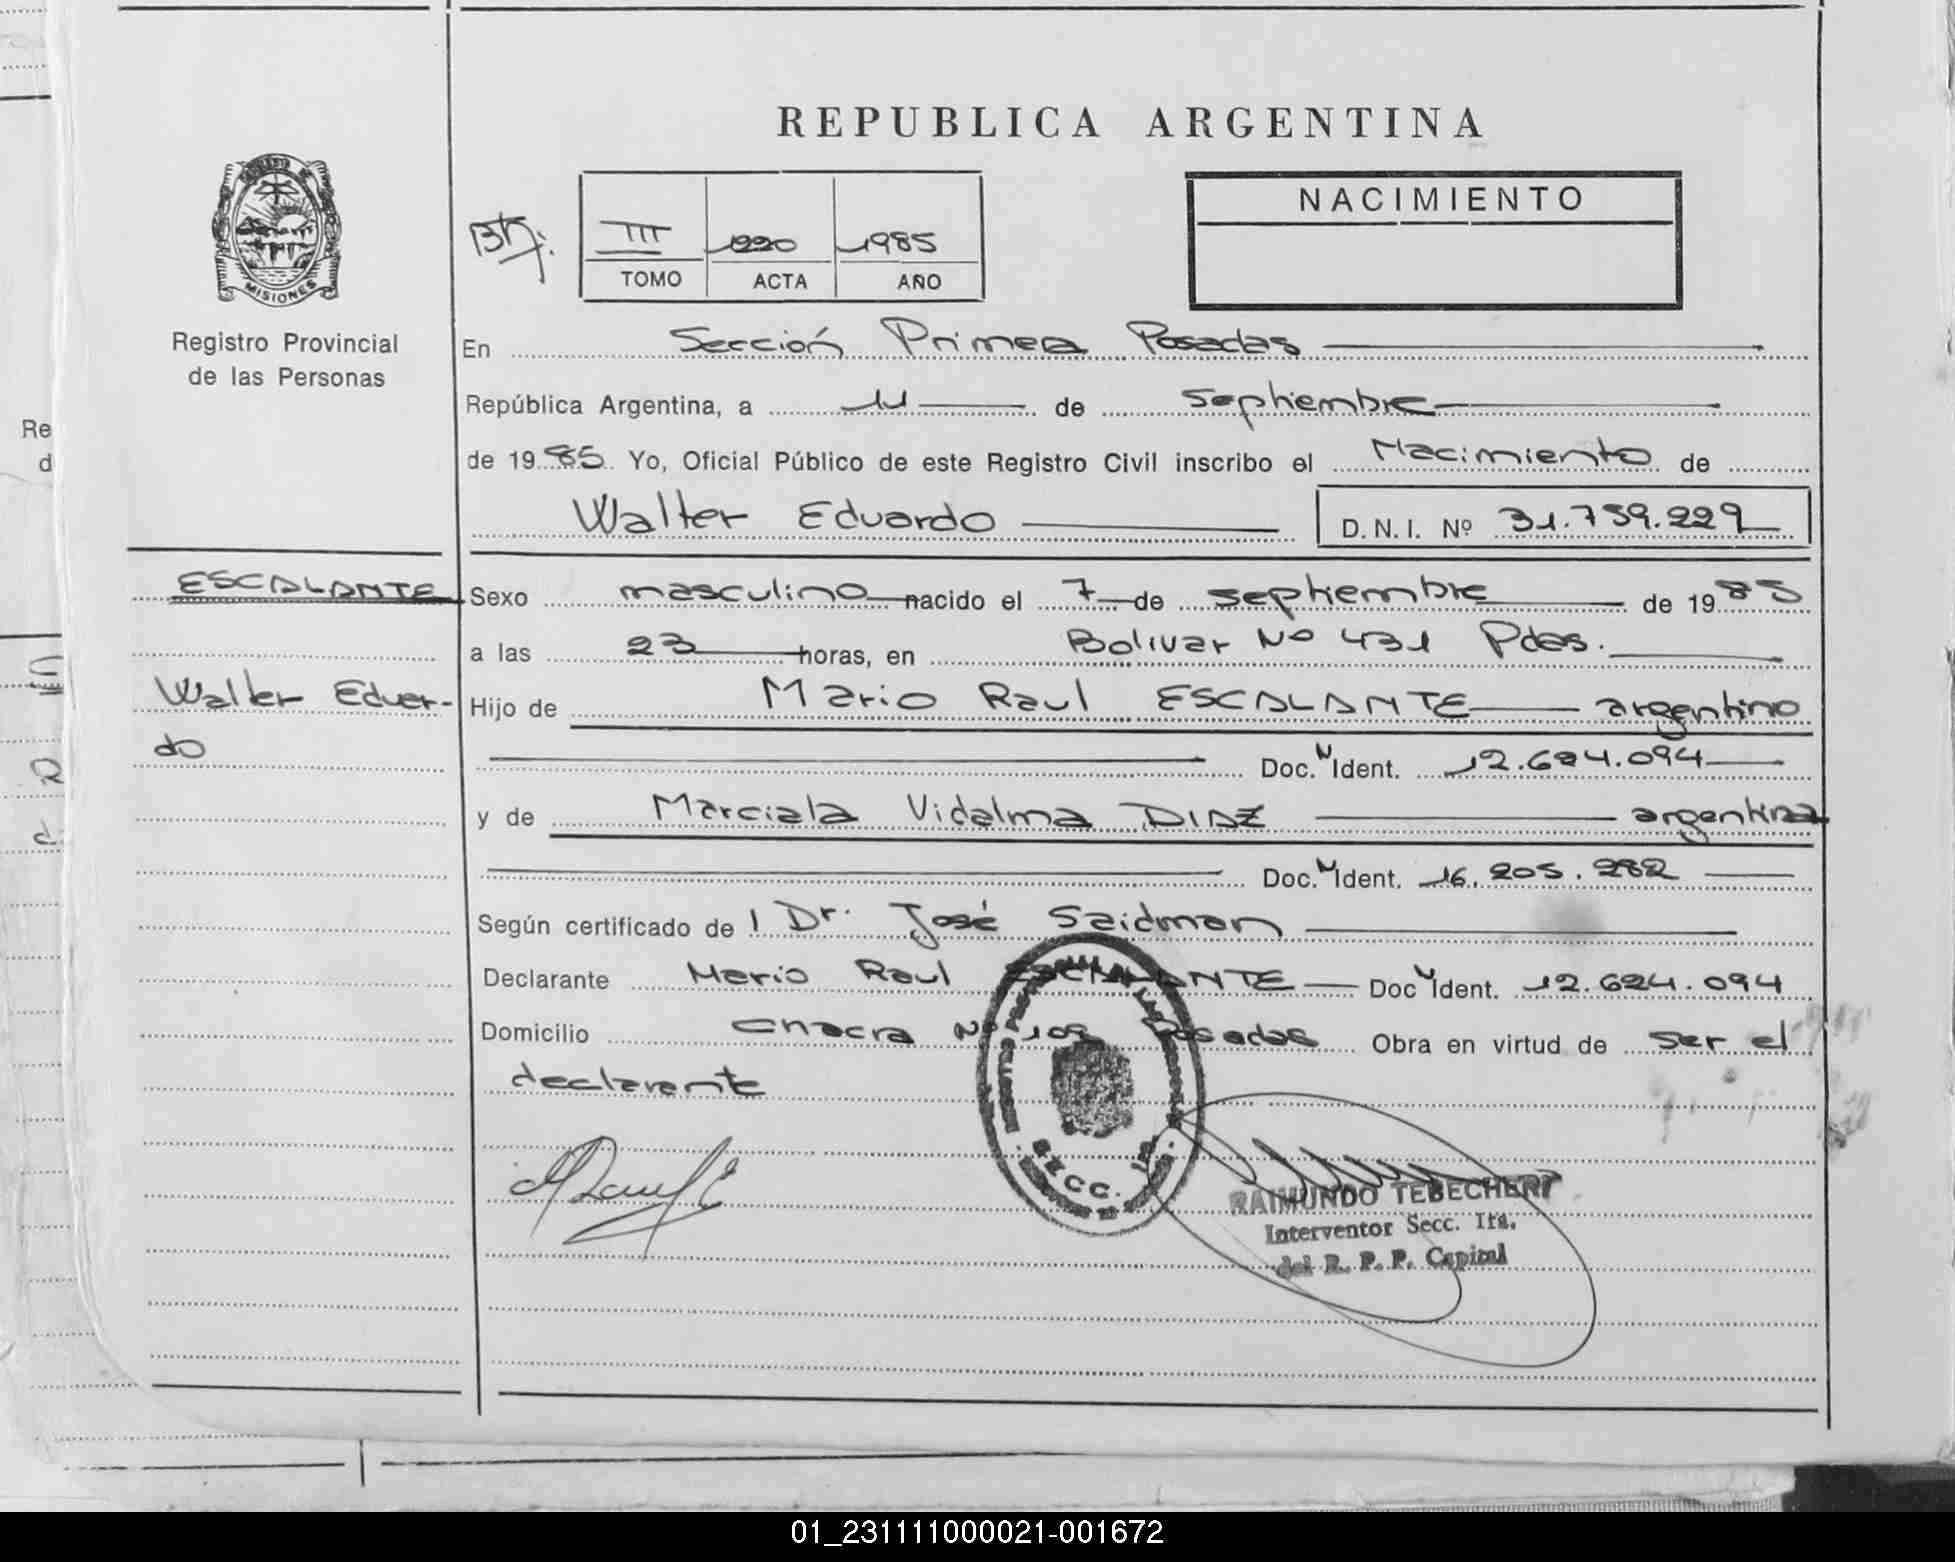 REPUBLICA ARGENTINA
MISIONES
Registro Provincial
de las Personas
III 1220 1985
TOMO ACTA AÑO
NACIMIENTO
En Sección Primera Posadas
República Argentina, a 11 de septiembre
de 1985 Yo, Oficial Público de este Registro Civil inscribo el Nacimiento de
Walter Eduardo D.N.I. Nº 31.759.229
ESCALANTE
Walter Eduar-
do
Sexo masculino nacido el 7 de septiembre de 1985
a las 23 horas, en Bolivar Nº 431 Pdas.
Hijo de Mario Raul ESCALANTE argentino
Doc. N Ident. 12.624.094
y de Marciala Vidalma DIAZ argentina
Doc. N Ident. 16.205.282
Según certificado de l Dr. José Saidman
Declarante Mario Raul ESCALANTE Doc N Ident. 12.624.094
Domicilio chacra Nº 109 Posadas Obra en virtud de ser el
declarante
SECC. 1ra
RAIMUNDO TEBECHERI
Interventor Secc. 1ra.
del R. P. P. Capital
01_231111000021-001672